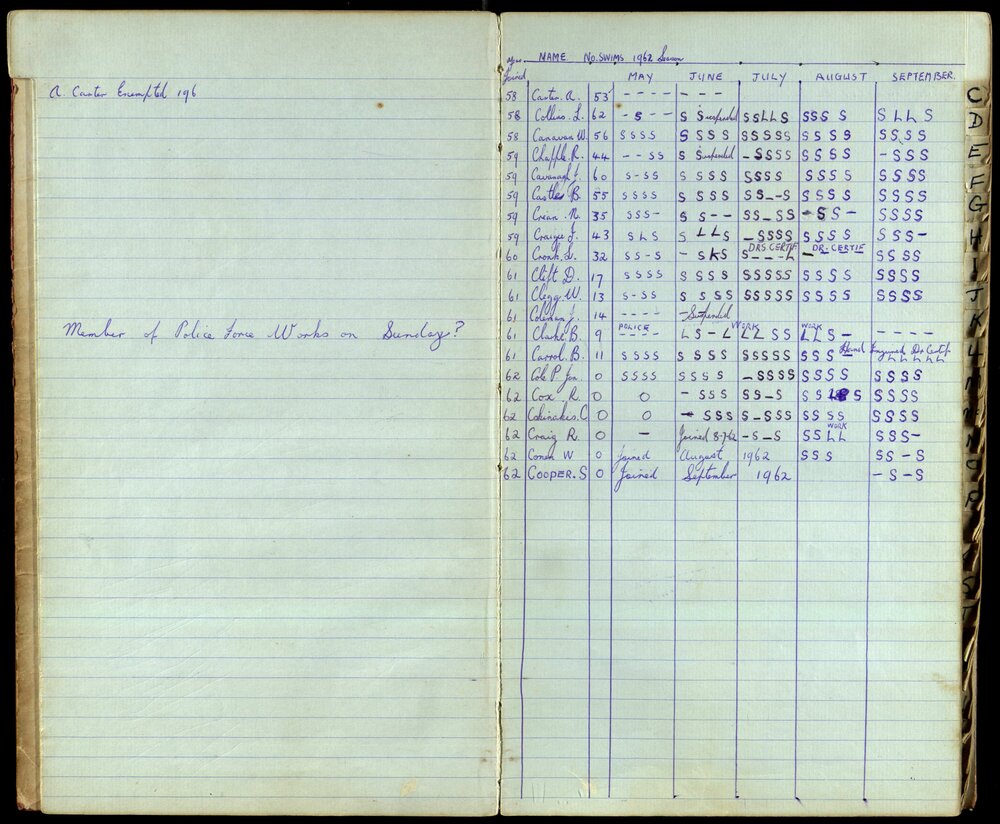 A. Carter Exempted 196
Member of Police Force Works on Sunday?
Year NAME No. SWIMS 1962 Season
Joined MAY JUNE JULY AUGUST SEPTEMBER.
58 Carter. A. 53 - - - - - - -
58 Collins. L. 62 - S - - S Suspended SSLLS SSS S S L L S
58 Canavan. W. 56 SSSS S SSS SSSSS SSSS SSSS
59 Chapple. R. 44 - - SS S Suspended -SSSS SSSS -SSS
59 Cavanagh J. 60 S-SS SSSS SSSS SSSS SSSS
59 Castles B. 55 SSSS S SSS SS--S SSSS SSSS
59 Crean. N. 35 SSS- S S-- SS-SS -SS- SSSS
59 Craigie J. 43 SLS S LLS -SSSS SSSS SSS-
DRS CERTIF DR. CERTIF
60 Cronk. L. 32 SS-S - SKS S---L - SSSS
61 Clift D. 17 SSSS S SSS SSSSS SSSS SSSS
61 Clegg. W. 13 S-SS S SSS SSSSS SSSS SSSS
61 Coleman J. 14 - - - - -Suspended
POLICE WORK WORK
61 Clarke. B. 9 - - - - LS-L LL SS LLS- - - - -
61 Carrol. B. 11 SSSS SSSS SSSSS SSS Hand Injured Dr Certif
LL LLL
62 Cole P. Jnr. 0 SSSS SSSS -SSSS SSSS SSSS
62 Cox R. 0 0 - SSS SS-S SS S SSSS
62 C. 0 0 - SSS S-SSS SSSS SSSS
WORK
62 Craig R. 0 - Joined 8-7-62 -S-S SSLL SSS-
62 W 0 joined August 1962 SSS SS-S
62 COOPER. S 0 Joined September 1962 -S-S
C
D
E
F
G
H
I
J
K
L
M
N
O
P
S
T